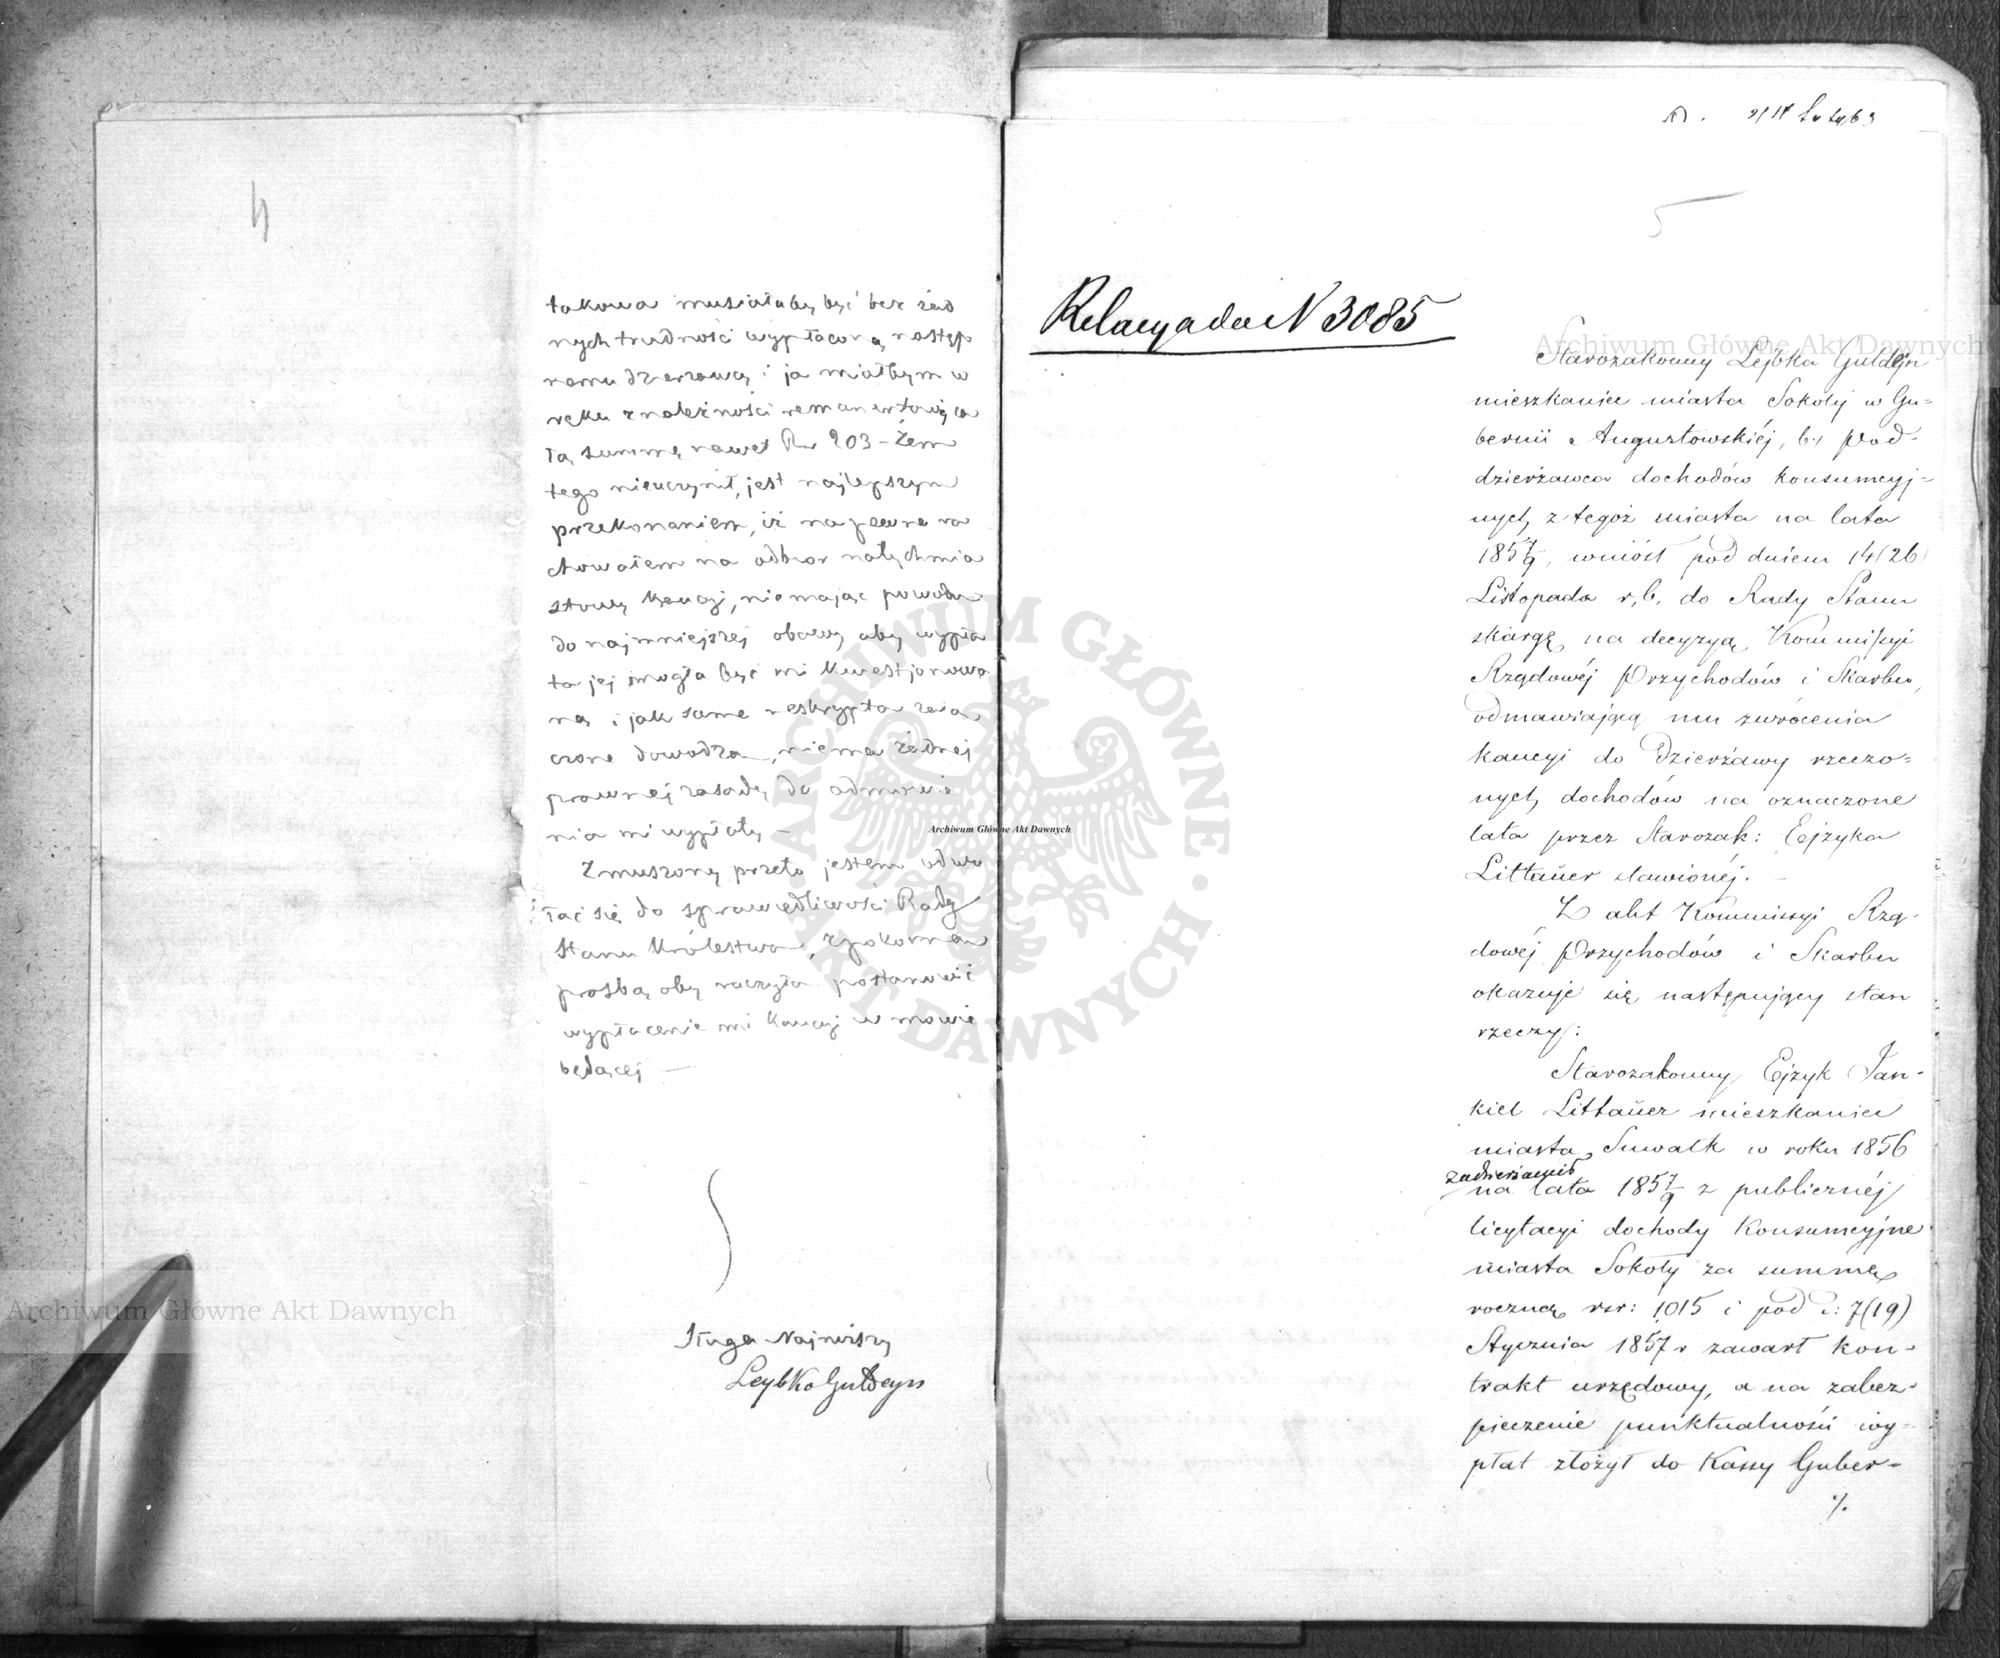 4
takowa musiałaby być bez żad
nych trudności wypłaconą następ
nemu dzierżawcy i ja miałbym w
ręku z należności remanentową ca
łą summę nawet Rs 203 – Żem
tego nieuczynił, jest najlepszym
przekonaniem, iż na pewne ra
chowałem na odbior natychmia
stowy Kaucyi, nie mając powodu
do najmniejszej obawy aby wypła
ta jej mogła być mi kwestjonowa
ną i jak same reskrypta zaia
czone dowodzą, niema żadnej
prawnej zasady do odmówie
nia mi wypłaty –
Zmuszony przeto jestem odwo
łać się do sprawiedliwości Rady
Stanu Królestwa, z pokorną
prośbą aby raczyła postanowić
wypłacenie mi Kaucyi w mowie
będącej –
Sługa Najniższy
Leybko Guldeyn
5
Relacya do N 3085
Starozakonny Lejbka Guldejn
mieszkaniec miasta Sokoły w Gu=
bernii Augustowskiéj, b. pod-
dzierżawca dochodów konsumcyj=
nych z tegoż miasta na lata
1857/9, wniósł pod dniem 14/26
Listopada r, b, do Rady Stanu
skargę na decyzyą Kommissyi
Rządowéj Przychodów i Skarbu,
odmawiającą mu zwrócenia
kaucyi do Dzierżawy rzeczo=
nych dochodów na oznaczone
lata przez Starozak: Ejzyka
Littaüer stawionéj. –
Z akt Kommissyi Rzą-
dowéj Przychodów i Skarbu
okazuje się następujący stan
rzeczy:
Starozakonny Ejzyk Jan-
kiel Littaüer mieszkaniec
miasta Suwałk w roku 1856
zadzierżawił
na lata 1857/9 z publicznéj
licytacyi dochody Konsumcyjne
miasta Sokoły za summę
roczną rsr: 1015 i pod d: 7(19)
Stycznia 1857 r zawarł kon-
trakt urzędowy, a na zabez-
pieczenie punktualności wy-
płat złożył do Kassy Guber-
%.
Archiwum Główne Akt Dawnych
Archiwum Główne Akt Dawnych
Archiwum Główne Akt Dawnych
ARCHIWUM GŁÓWNE AKT DAWNYCH